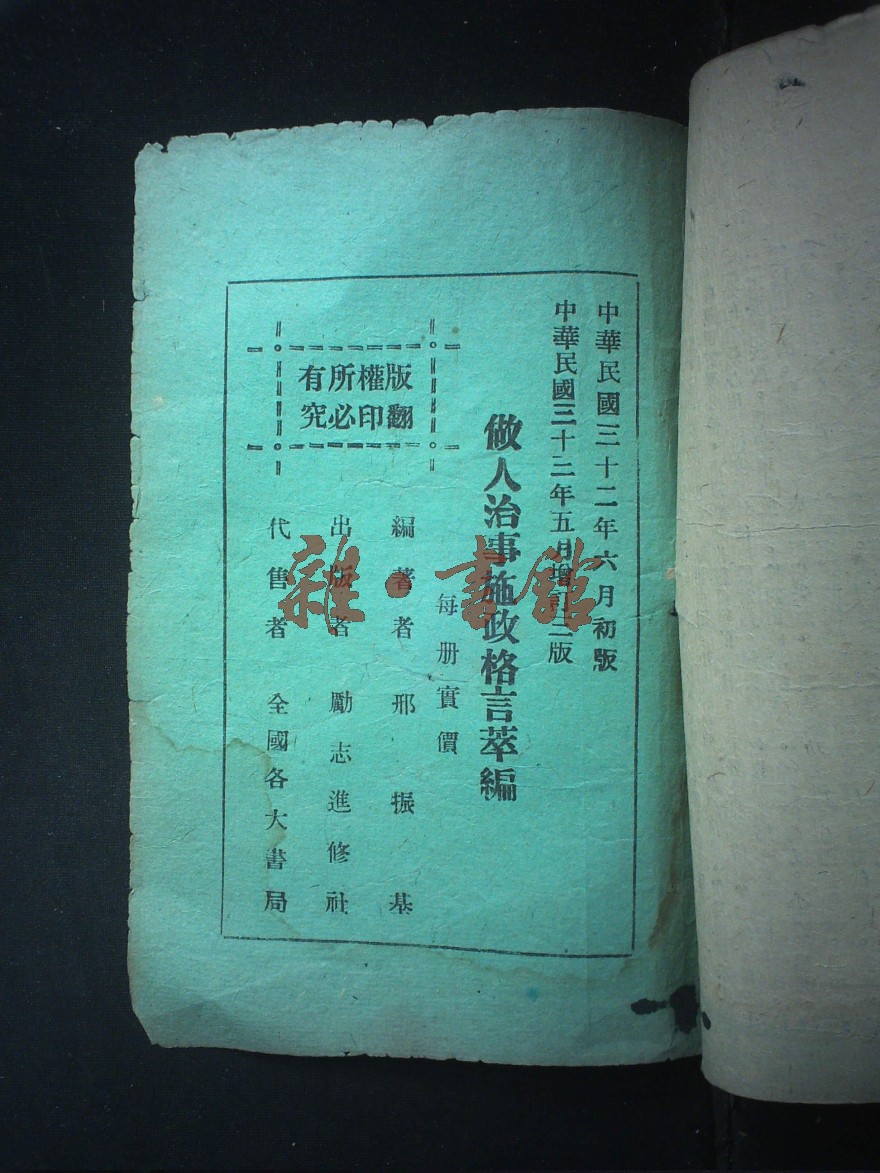 中華民國三十二年六月初版
中華民國三十三年五月增訂三版
做人治事施政格言萃編
每册實價
版權所有
翻印必究
編著者 邢振基
出版者 勵志進修社
代售者 全國各大書局
雜·書館